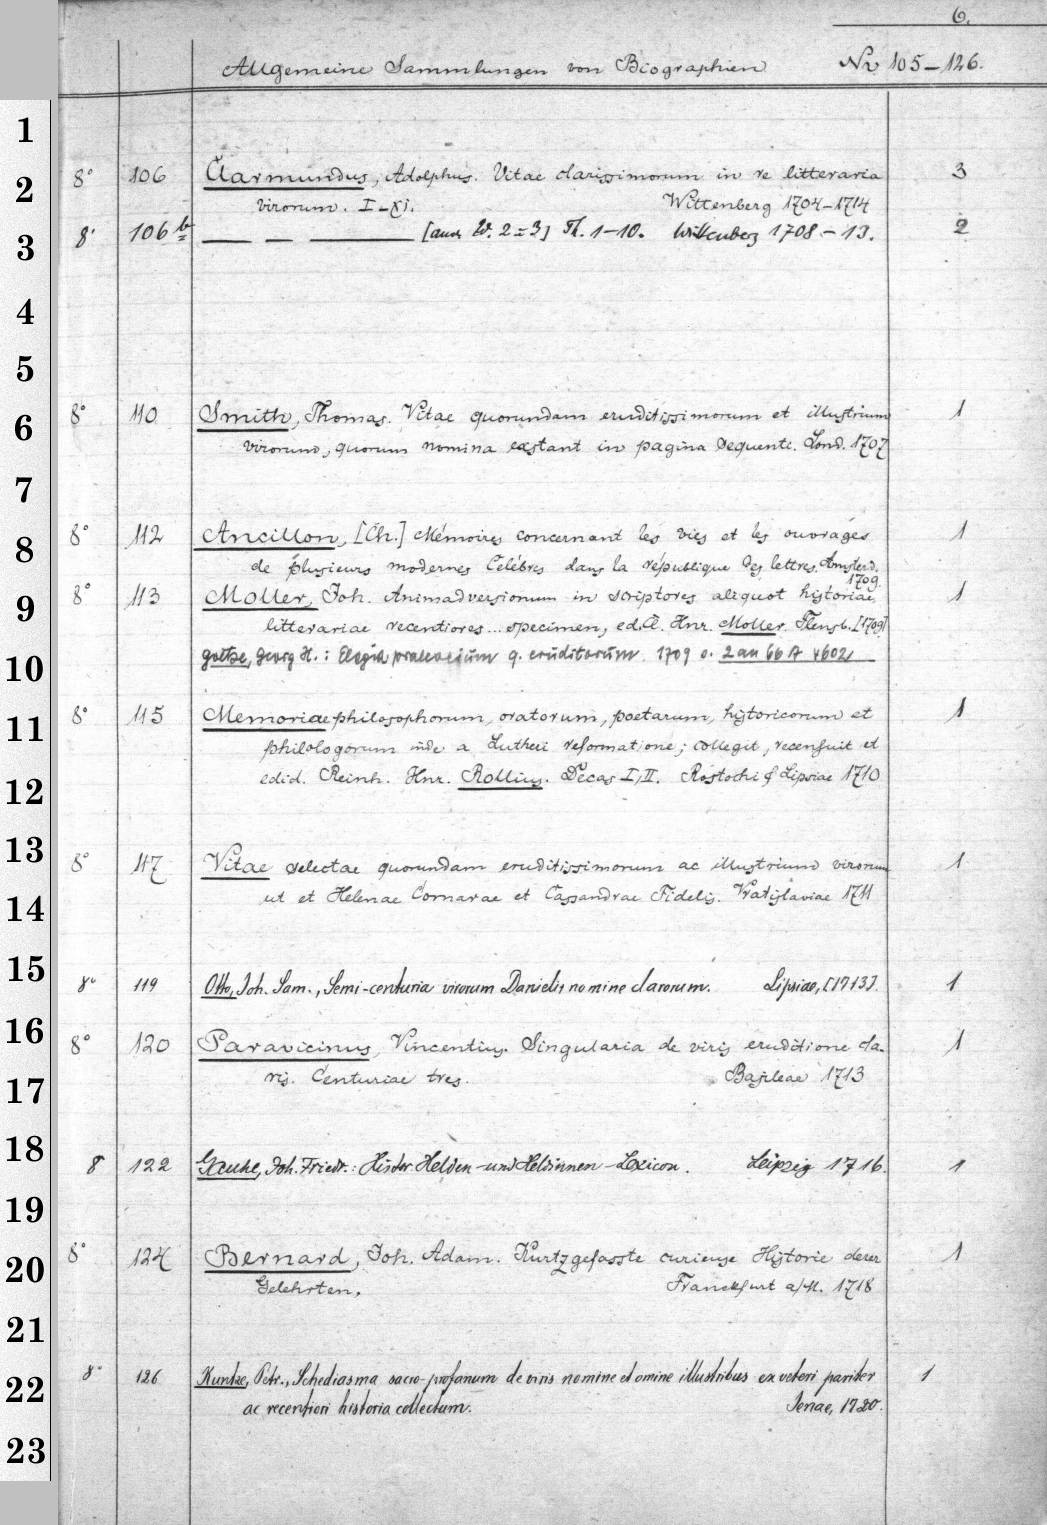 6.
Allgemeine Sammlungen von Biographien Nr 105-126.
1
2
3
4
5
6
7
8
9
10
11
12
13
14
15
16
17
18
19
20
21
22
23
8° 106 Clarmundus, Adolphus. Vitae clarissimorum in re litteraria 3
virorum. I-XI. Wittenberg 1704-1714
8° 106 b — — — [and. W. 2=3] Th. 1-10. Wittenberg 1708-13. 2
8° 110 Smith, Thomas. Vitae quorundam eruditissimorum et illustrium 1
virorum, quorum nomina exstant in pagina sequente. Lond. 1707
8° 112 Ancillon, [Ch.] Mémoires concernant les vies et les ouvrages 1
de plusieurs modernes célèbres dans la république des lettres. Amsterd.
1709.
8° 113 Moller, Joh. Animadversionum in scriptores aliquot historiae 1
litterariae recentiores... specimen, ed. Hnr. Moller. Flensb. [1709]
Goetze, Georg H.: Elogia q. eruditorum 1709 2 an 66 A
8° 115 Memoriae philosophorum, oratorum, poetarum, historicorum et 1
philologorum inde a Lutheri reformatione; collegit, recensuit et
edid. Reinh. Hnr. Rollius. Decas I, II. Rostochi & Lipsiae 1710
8° 117 Vitae selectae quorundam eruditissimorum ac illustrium virorum 1
ut et Helenae Cornarae et Cassandrae Fidelis. Vratislaviae 1711
8° 119 Otto, Joh. Sam., Semi-centuria virorum Danielis nomine clarorum. Lipsiae, [1713]. 1
8° 120 Paravicinus, Vincentius. Singularia de viris eruditione cla- 1
ris. Centuriae tres. Basileae 1713
8° 122 Gauhe, Joh. Friedr.: Histor. Helden- und Heldinnen-Lexicon. Leipzig 1716. 1
8° 124 Bernard, Joh. Adam. Kurtzgefasste curieuse Historie derer 1
Gelehrten. Franckfurt a/M. 1718
8° 126 Kuntze, Petr., Schediasma sacro-profanum de viris nomine et omine illustribus ex veteri pariter 1
ac recentiori historia collectum. Jenae, 1720.